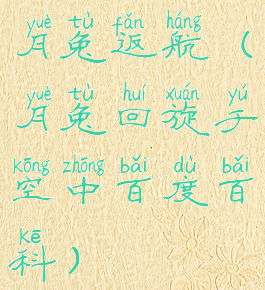 yuè tù fǎn háng
月兔返航（
yuè tù huí xuán yú
月兔回旋于
kōng zhōng bǎi dù bǎi
空中百度百
kē
科）